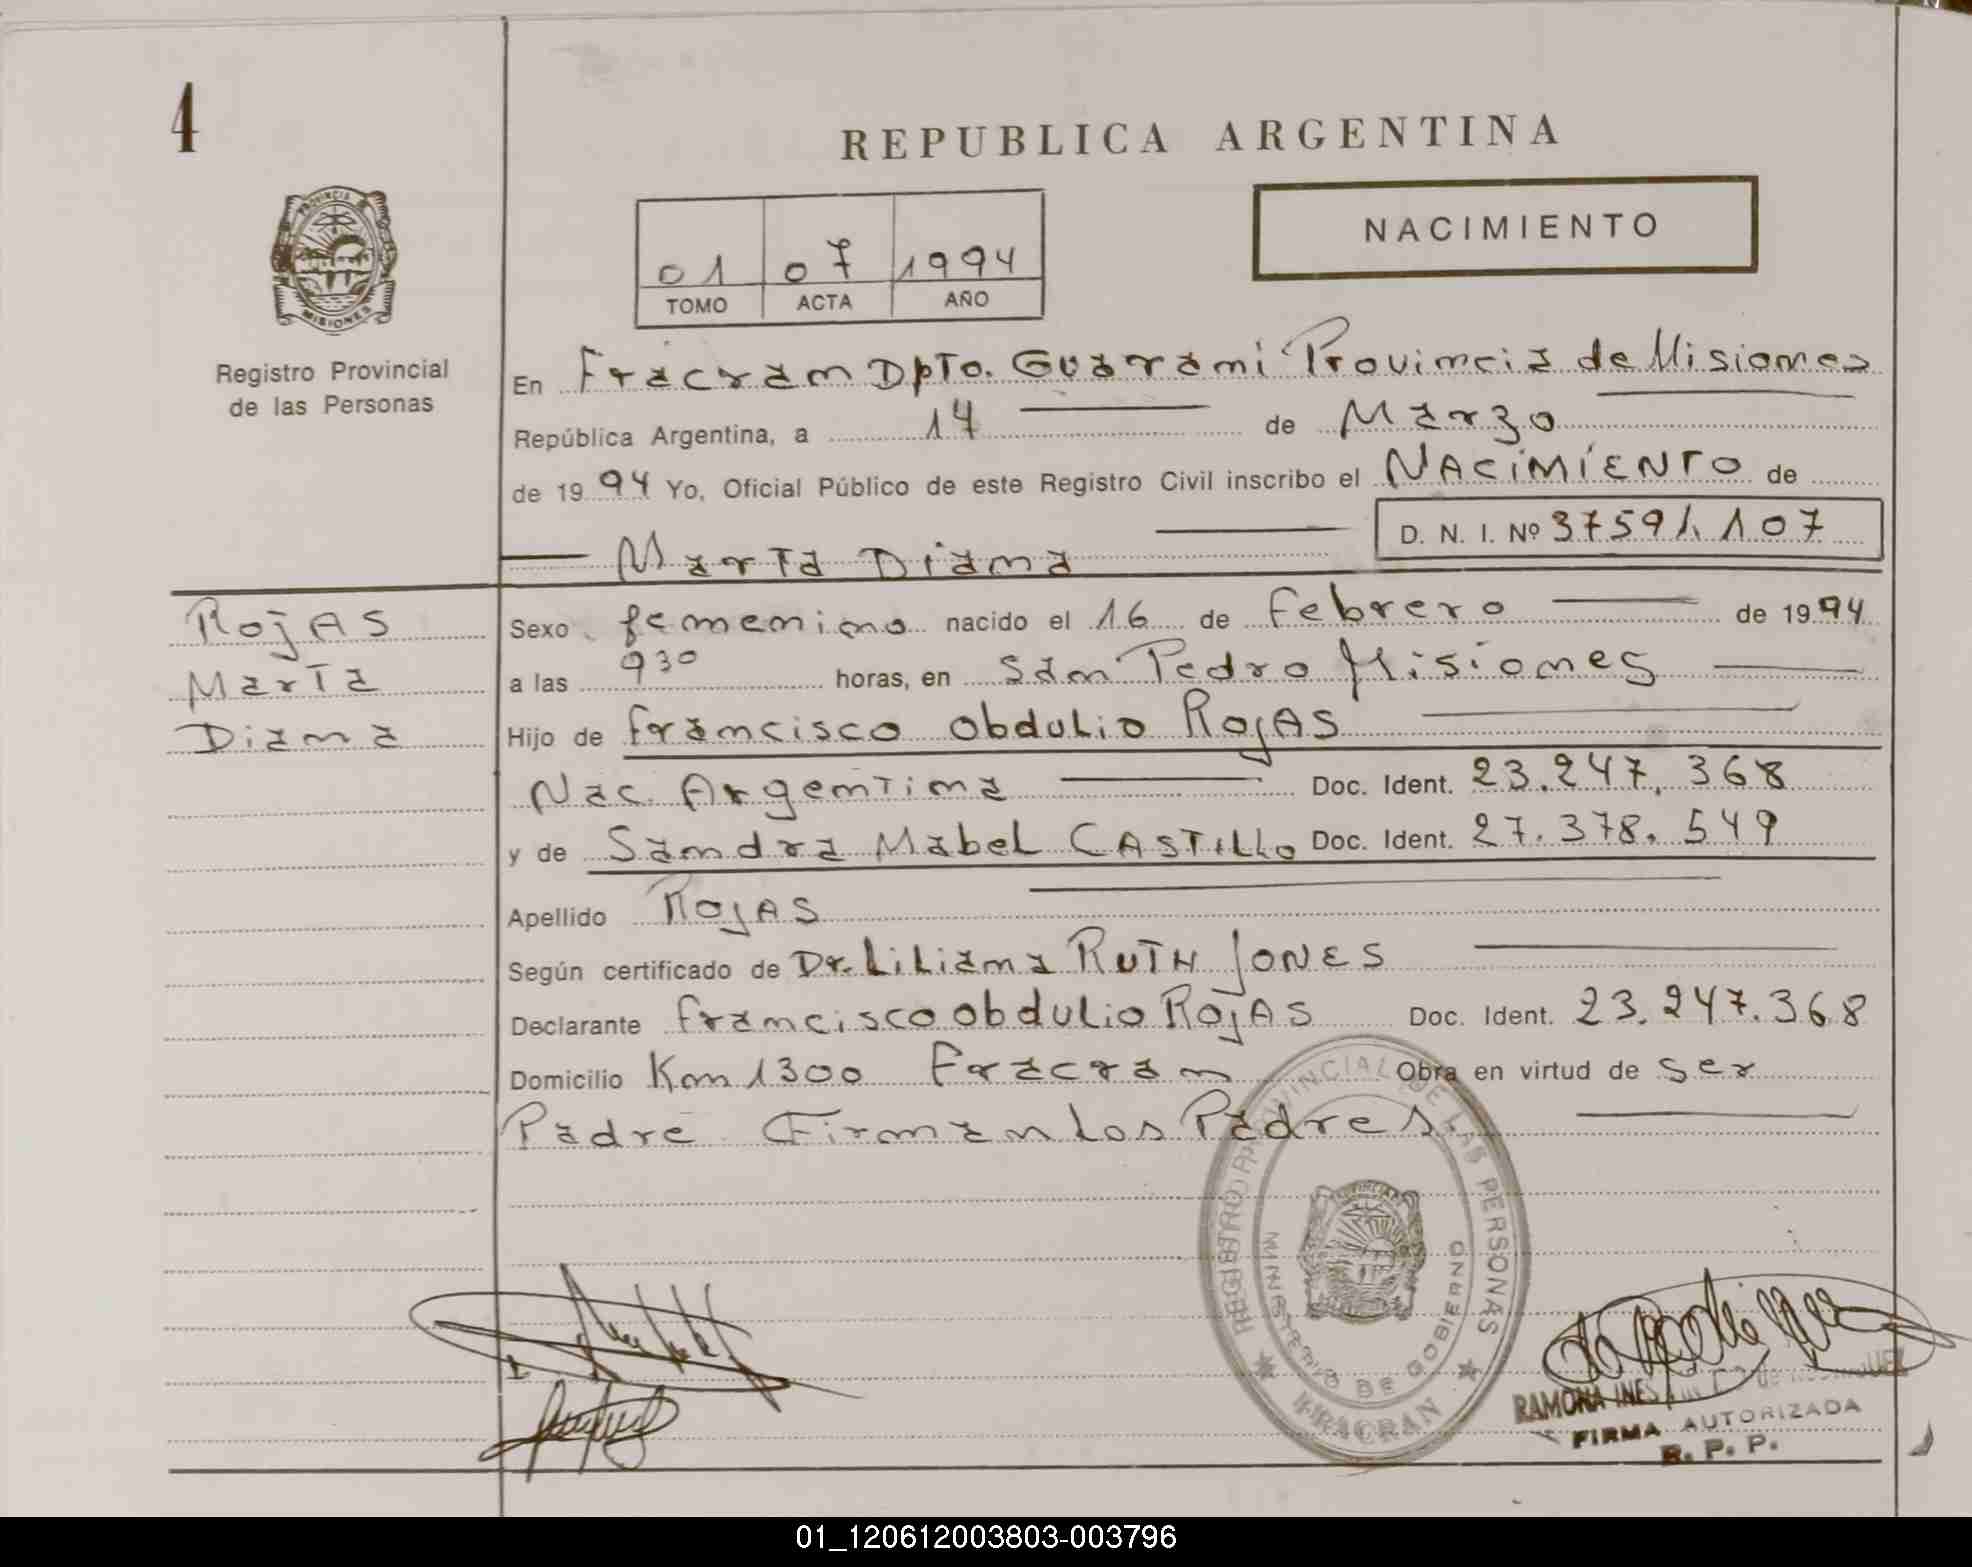 4
REPUBLICA ARGENTINA
PROVINCIA DE
MISIONES
Registro Provincial
de las Personas
01 07 1994
TOMO ACTA AÑO
NACIMIENTO
En Fracran Dpto. Guarani Provincia de Misiones
República Argentina, a 14 de Marzo
de 1994 Yo, Oficial Público de este Registro Civil inscribo el NACIMIENTO de
Marta Diana
D. N. I. Nº 37591.107
ROJAS
Marta
Diana
Sexo femenino nacido el 16 de Febrero de 1994
a las 930 horas, en San Pedro Misiones
Hijo de Francisco Obdulio ROJAS
Nac. Argentina Doc. Ident. 23.247.368
y de Sandra Mabel CASTILLO Doc. Ident. 27.378.549
Apellido ROJAS
Según certificado de Dr. Liliana RUTH JONES
Declarante Francisco Obdulio ROJAS Doc. Ident. 23.247.368
Domicilio Km 1300 Fracran Obra en virtud de ser
Padre Firman los Padres.
REGISTRO PROVINCIAL DE LAS PERSONAS
MINISTERIO DE GOBIERNO
FRACRAN
RAMONA INES
FIRMA AUTORIZADA
R. P. P.
01_120612003803-003796